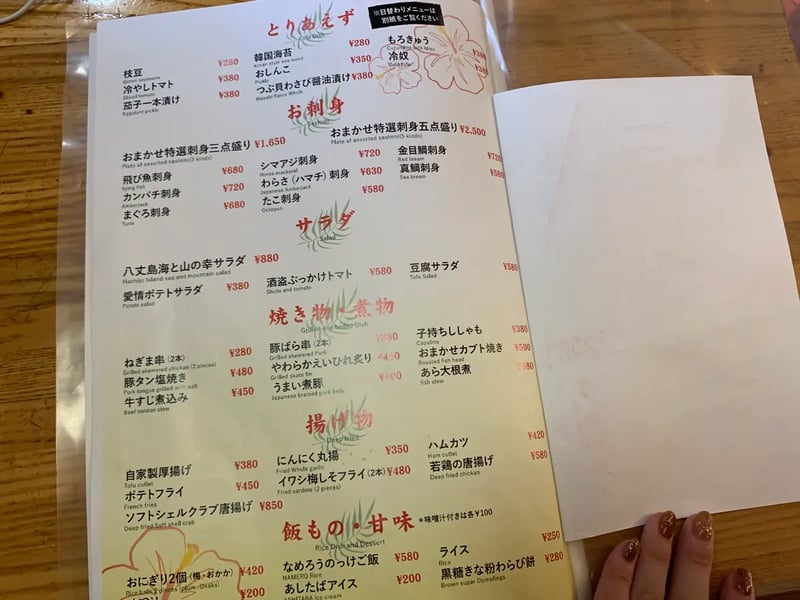 とりあえず
※日替わりメニューは
別紙をご覧ください
枝豆 ¥280
Green soybeans
冷やしトマト ¥380
Sliced tomato
茄子一本漬け ¥380
Eggplant pickls
韓国海苔 ¥280
Korian style sea weed
おしんこ ¥350
Pickls
つぶ貝わさび醤油漬け ¥380
Wasabi flavor Whelk
もろきゅう ¥380
冷奴
お刺身
Sashimi
おまかせ特選刺身三点盛り ¥1.650
Plate of assorted sashimi(3 kinds)
おまかせ特選刺身五点盛り ¥2.500
Plate of assorted sashimi(5 kinds)
飛び魚刺身 ¥680
flying fish
カンパチ刺身 ¥720
Amberjack
まぐろ刺身 ¥680
Tuna
シマアジ刺身 ¥720
Horse mackerel
わらさ(ハマチ)刺身 ¥630
Japanese Amberjack
たこ刺身 ¥580
Octopus
金目鯛刺身 ¥720
Red bream
真鯛刺身 ¥580
Sea bream
サラダ
Salad
八丈島海と山の幸サラダ ¥880
Hachijo Island sea and mountain salad
愛情ポテトサラダ ¥380
Potate salad
酒盗ぶっかけトマト ¥580
Shuto and tomato
豆腐サラダ ¥580
Tofu Salad
焼き物・煮物
Grilled and boiled Dish
ねぎま串(2本) ¥280
Grilled skewered chicken (2 pieces)
豚タン塩焼き ¥480
Pork tongue grilled with salt
牛すじ煮込み ¥450
Beef tendon stew
豚ばら串(2本) ¥380
Grilled skewered Pork
やわらかえいひれ炙り
Grilled skate fin
うまい煮豚
Japanese braised pork belly
子持ちししゃも ¥380
Capelins
おまかせカブト焼き ¥500
Roasted fish head
あら大根煮 ¥580
fish stew
揚げ物
Deep fried
自家製厚揚げ ¥380
Tofu cutlet
ポテトフライ ¥450
French fries
ソフトシェルクラブ唐揚げ ¥850
Deep fried Soft shell crab
にんにく丸揚 ¥350
Fried Whole garlic
イワシ梅しそフライ(2本) ¥480
Fried sardine (2 pieces)
ハムカツ ¥420
Ham cutlet
若鶏の唐揚げ ¥580
Deep fried chicken
飯もの・甘味 *味噌汁付きは各¥100
Rice Dish and Dessert
おにぎり2個(梅・おかか) ¥420
¥200
なめろうのっけご飯 ¥580
NAMERO Rice
あしたばアイス ¥200
ASHITABA Ice cream
ライス ¥250
Rice
黒糖きな粉わらび餅 ¥280
Brown sugar Dumplings